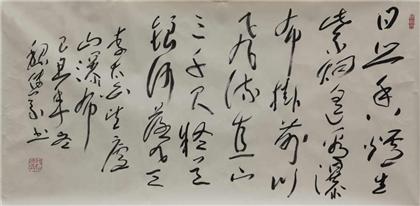 日照香爐生
紫烟遥看瀑
布掛前川
飞流直下
三千尺疑是
銀河落九天
李太白望廬
山瀑布
己丑年
书